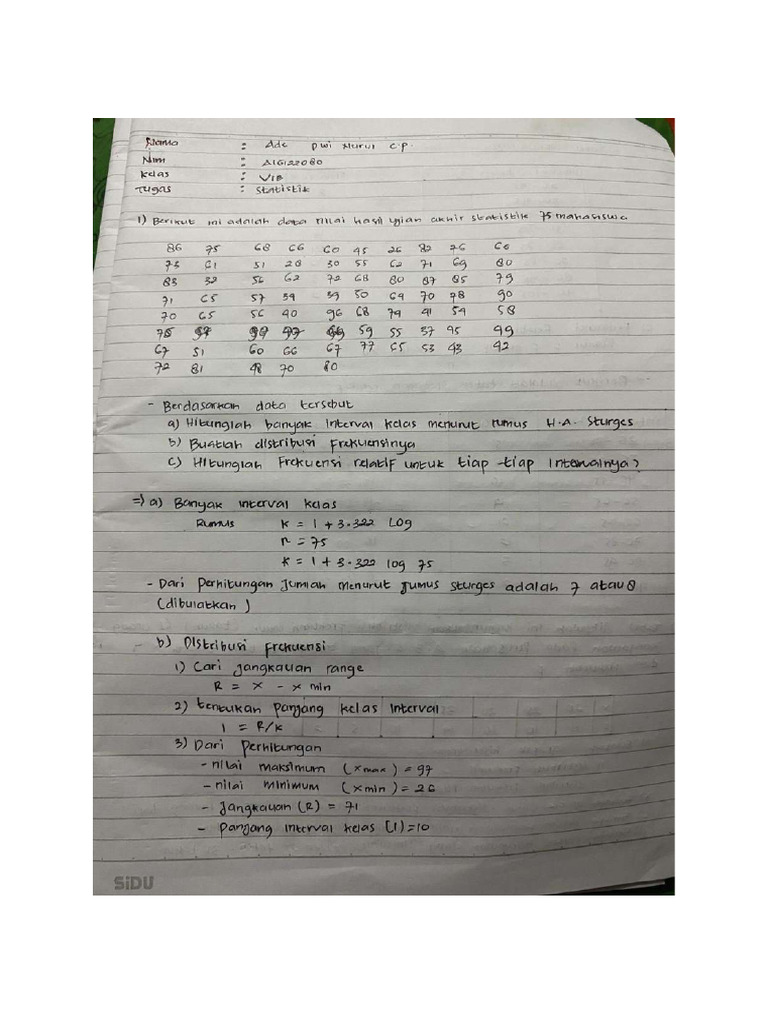 Nama : Ade Dwi Nurul C.P.
Nim : A1G122080
Kelas : VIB
Tugas : Statistik
1) Berikut ini adalah data nilai hasil ujian akhir statistik 75 mahasiswa
86 75 68 66 60 45 26 82 76 60
73 61 51 28 30 55 62 71 69 80
83 32 56 62 72 68 80 87 85 79
71 65 57 39 39 50 69 70 78 90
70 65 56 40 96 68 79 41 54 58
59 55 37 95 49
67 51 60 66 67 77 65 53 43 42
72 81 48 70 80
- Berdasarkan data tersebut
a) Hitunglah banyak interval kelas menurut rumus H.A. Sturges
b) Buatlah distribusi Frekuensinya
c) Hitunglah Frekuensi relatif untuk tiap-tiap Intervalnya?
=> a) Banyak interval kelas
Rumus K = 1 + 3.322 LOG
n = 75
K = 1 + 3.322 log 75
- Dari perhitungan Jumlah menurut rumus sturges adalah 7 atau 8
(dibulatkan)
b) Distribusi Frekuensi
1) Cari jangkauan range
R = x - x min
2) tentukan panjang kelas Interval
I = R/K
3) Dari perhitungan
- nilai maksimum (xmax) = 97
- nilai minimum (xmin) = 26
- Jangkauan (R) = 71
- Panjang interval kelas (I) = 10
SiDU